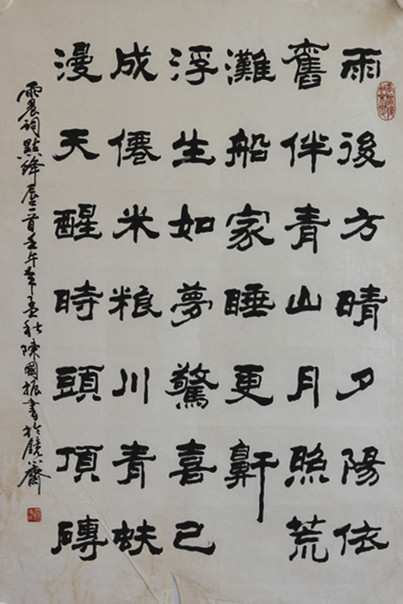 雨後方晴夕陽依
舊伴青山月照荒
灘船家睡更鼾
浮生如夢驚喜已
成僊米粮川青蚨
漫天醒時頭頂磚
雨晨詞點絳唇一首壬午年孟秋陳國振書於鏡心齋